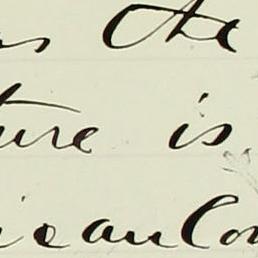 s the
ture is
ican Con